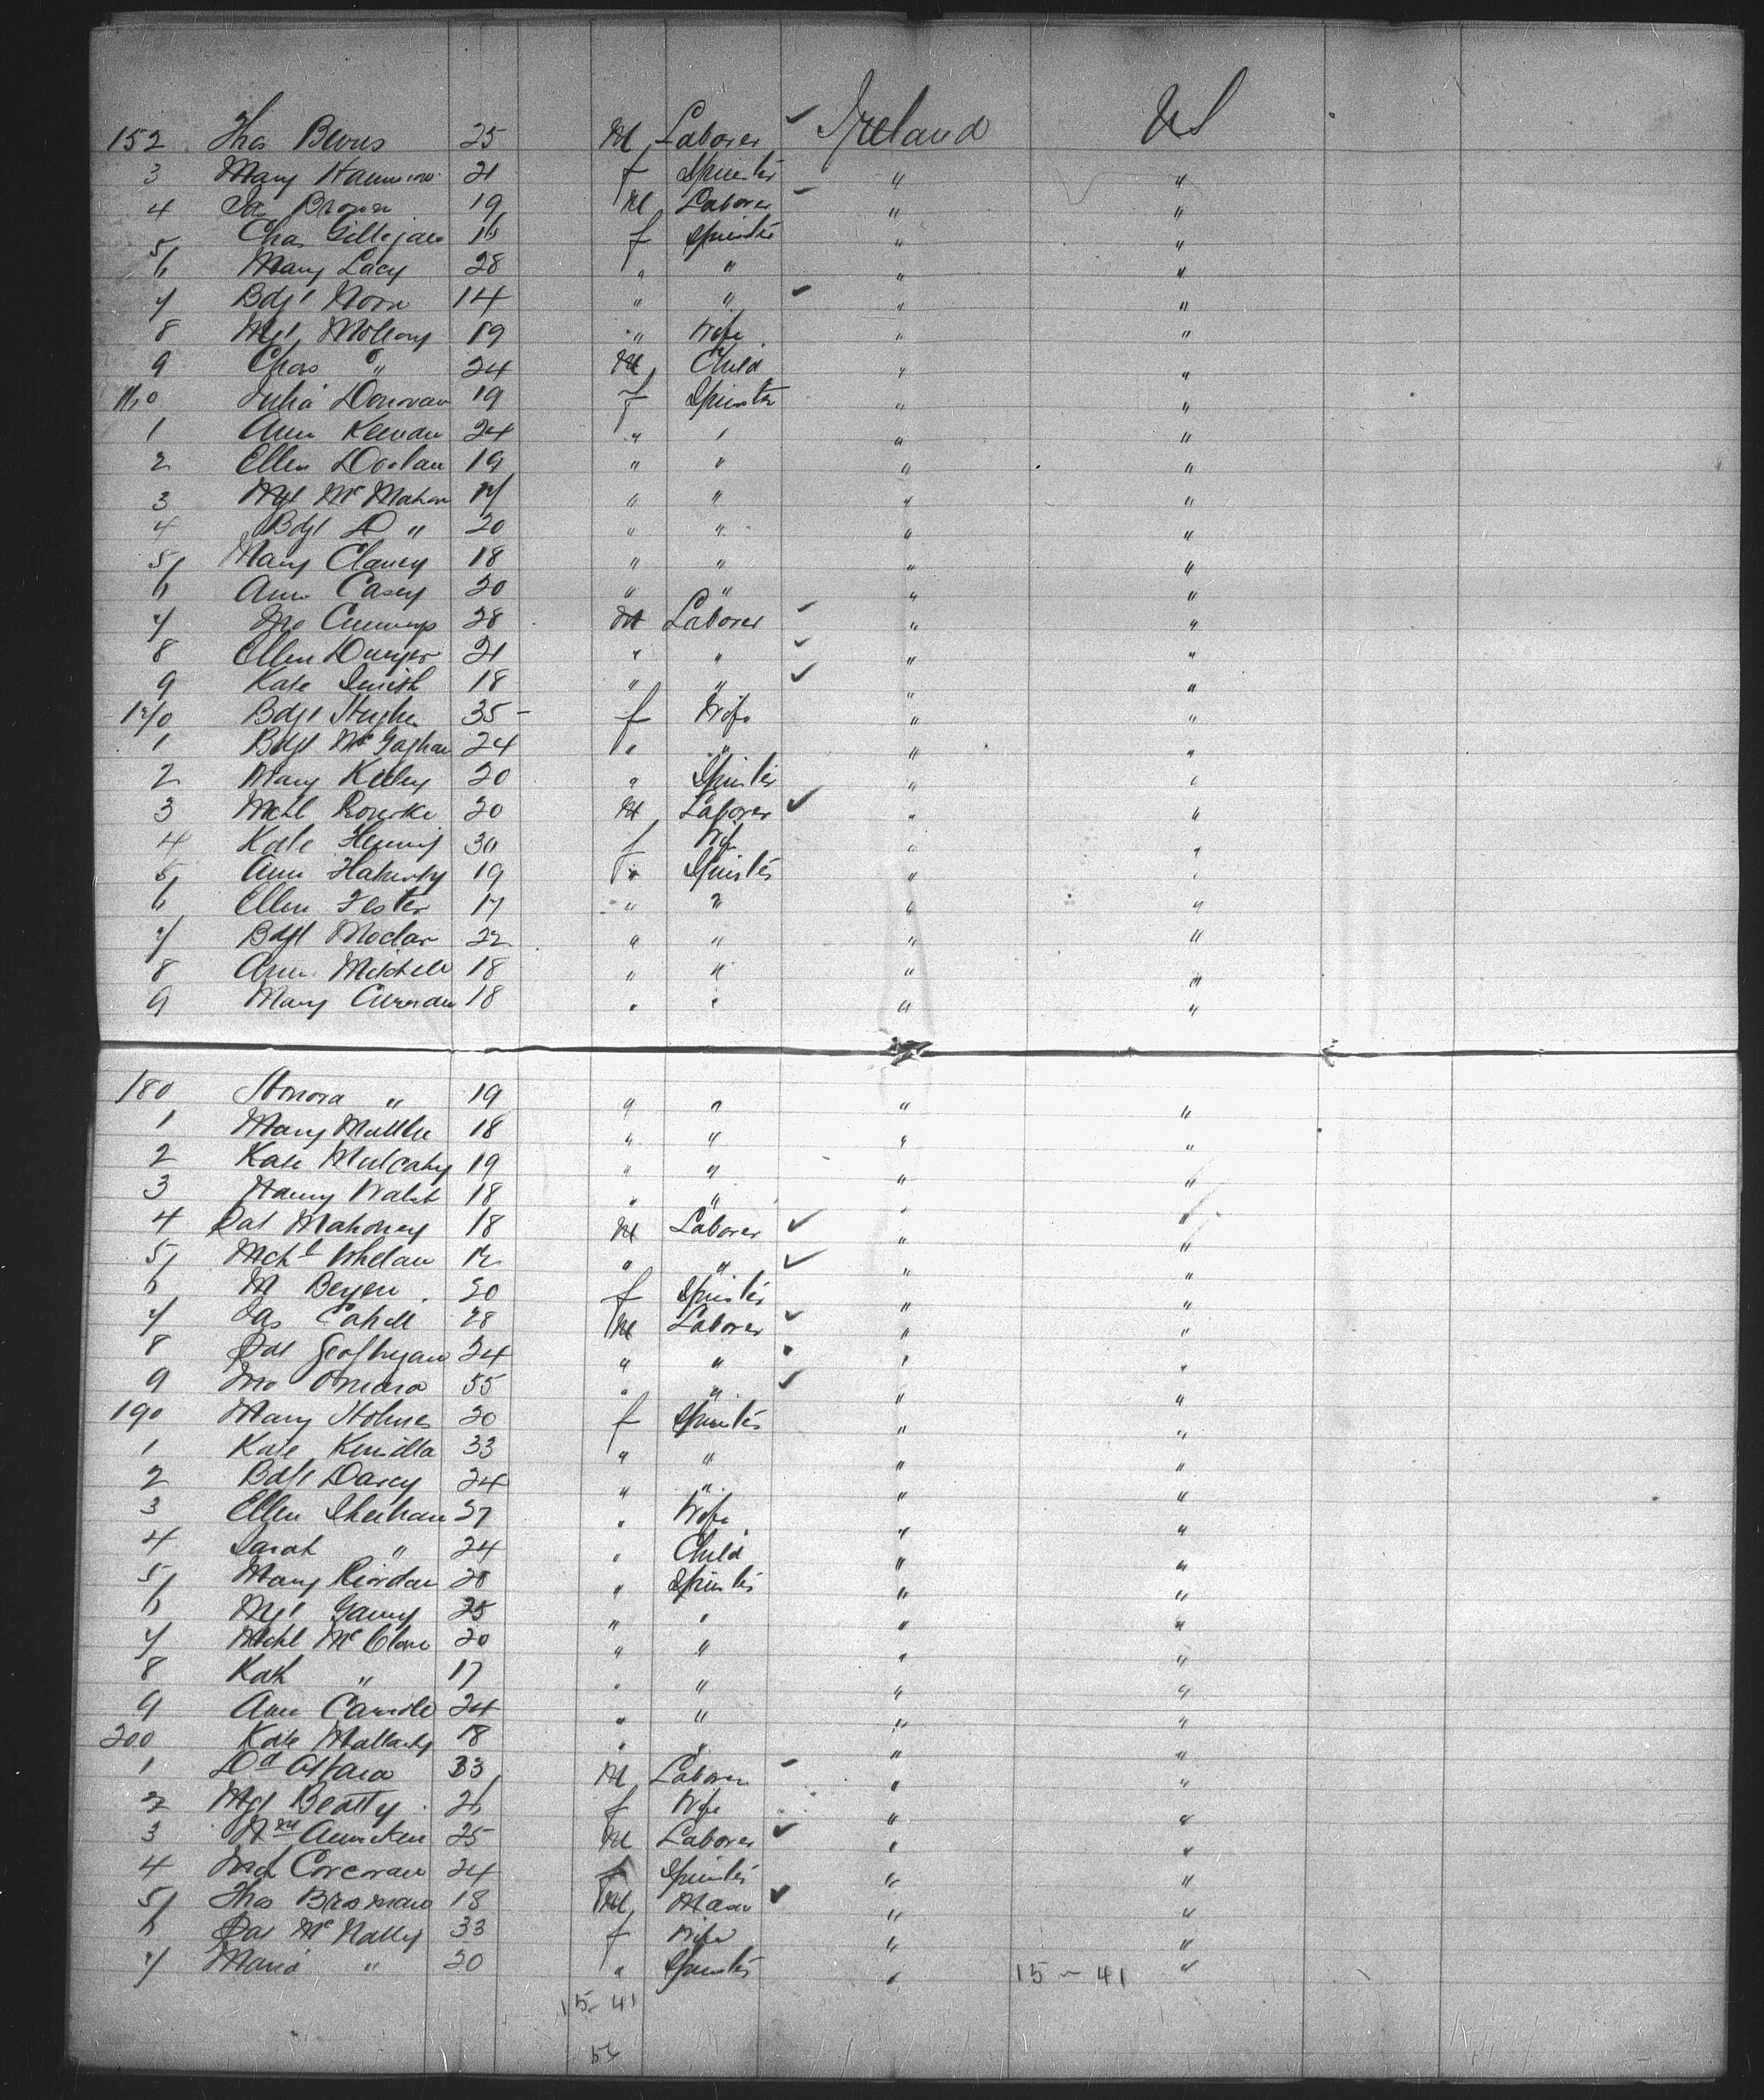 152 Thos Burns 25 M Laborer ✓ Ireland US
3 Mary 21 f Spinster " "
4 Jas Brown 19 M Laborer " "
5 Chas Gilligan 16 f Spinster " "
6 Mary Lacy 28 " " " "
7 Bdgt Nora 14 " " ✓ " "
8 Mgt 19 " Wife " "
9 Chas " 24 M Child " "
160 Julia Donovan 19 f Spinster " "
1 Ann Keenan 24 " " " "
2 Ellen Doolan 19 " " " "
3 Mgt McMahon 17 " " " "
4 Bdgt D " 20 " " " "
5 Mary Clancy 18 " " " "
6 Ann Casey 20 " " " "
7 Jno Cummings 28 M Laborer ✓ " "
8 Ellen Dwyer 21 " " ✓ " "
9 Kate Smith 18 " " ✓ " "
170 Bdgt Hughes 35 f Wife " "
1 Bdgt 24 " " " "
2 Mary Kelley 20 " Spinster " "
3 Mchl Rourke 20 M Laborer ✓ " "
4 Kate 30 f Wife " "
5 Ann Flaherty 19 " Spinster " "
6 Ellen Fester 17 " " " "
7 Bdgt 22 " " " "
8 Ann Mitchell 18 " " " "
9 Mary Curran 18 " " " "
180 Honora " 19 " " " "
1 Mary 18 " " " "
2 Kate Mulcahy 19 " " " "
3 Walsh 18 " " " "
4 Pat Mahoney 18 M Laborer ✓ " "
5 Mchl Whelan 12 " " ✓ " "
6 M 20 f Spinster " "
7 Jas Cahill 28 M Laborer ✓ " "
8 Pat 24 " " " "
9 Jno Omara 55 " " ✓ " "
190 Mary Holmes 20 f Spinster " "
1 Kate Kinsella 33 " " " "
2 Bdgt Darcy 24 " " " "
3 Ellen Sheehan 27 " Wife " "
4 Sarah " 24 " Child " "
5 Mary Riordan 20 " Spinster " "
6 Mgt 25 " " " "
7 Mchl 20 " " " "
8 Kate " 17 " " " "
9 Ann 24 " " " "
200 Kate 18 " " " "
1 Dd OHara 33 M Laborer " "
2 Mgt Beatty 26 f Wife " "
3 Wm 25 M Laborer ✓ " "
4 Corcoran 24 f Spinster " "
5 Thos Brosnan 18 M ✓ " "
6 Pat McNally 33 f Wife " "
7 Maria " 20 " Spinster " 15-41 "
15-41